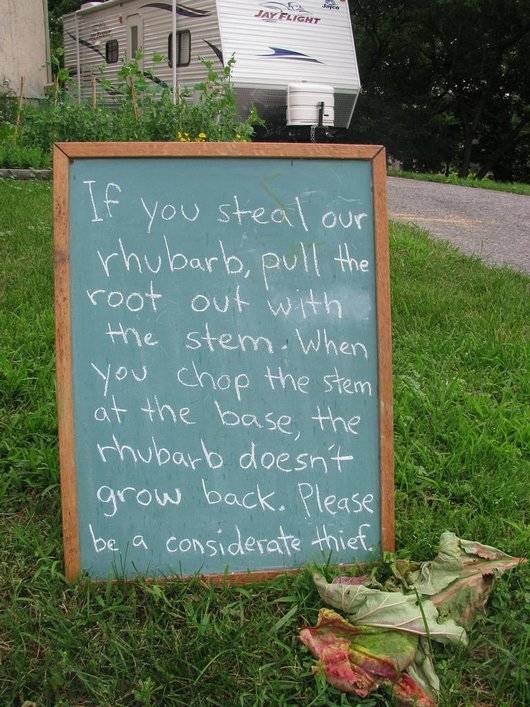 JAY FLIGHT
Jayco
If you steal our
rhubarb, pull the
root out with
the stem. When
you chop the stem
at the base, the
rhubarb doesn't
grow back. Please
be a considerate thief.